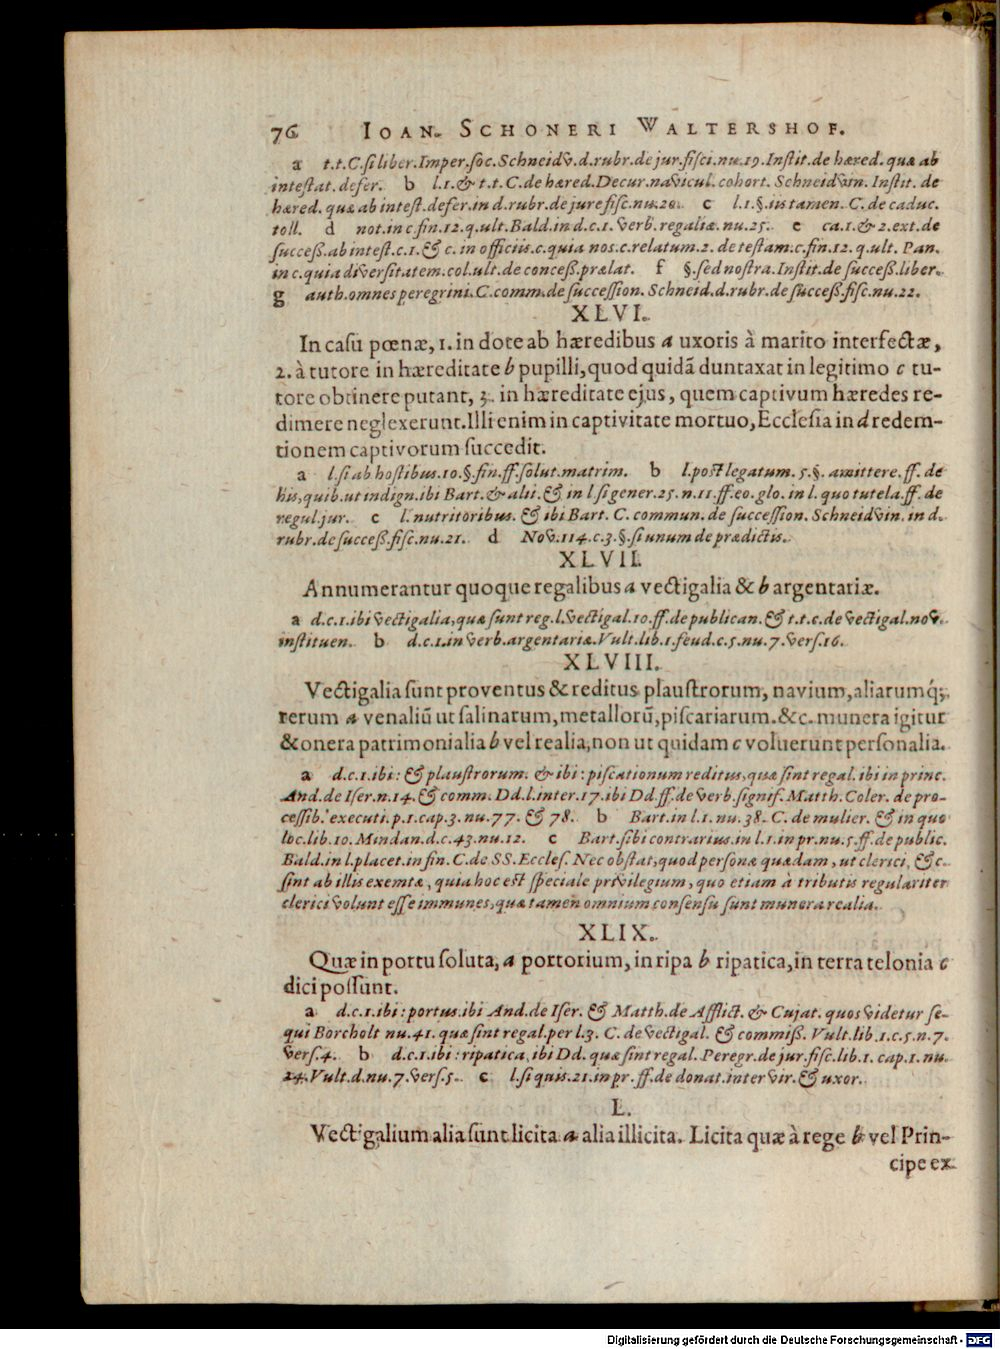 76 IOAN. SCHONERI WALTERSHOF.
a t.t.C.si liber.Imper.soc.Schneidv.d.rubr.de jur.fisci.nu.19.Instit.de hæred. quæ ab
intestat.defer. b l.1.& t.t.C.de hæred.Decur.navicul.cohort. Schneidvvin. Instit. de
hæred. quæ ab intest.defer.in d.rubr.de jure fisc.nu.20. c l.1.§.iis tamen. C. de caduc.
toll. d not.in c.fin.12.q.ult.Bald.in d.c.1.verb.regaliæ.nu.25. e ca.1.& 2.ext.de
success.ab intest.c.1.& c. in officiis.c.quia nos.c.relatum.2. de testam.c.fin.12.q.ult. Pan.
in c.quia diversitatem.col.ult.de concess.prælat. f §.sed nostra.Instit.de success.liber.
g auth.omnes peregrini.C.comm.de succession. Schneid.d.rubr.de success.fisc.nu.22.
XLVI.
In casu pœnæ, 1. in dote ab hæredibus a uxoris à marito interfectæ,
2. à tutore in hæreditate b pupilli, quod quidã duntaxat in legitimo c tu-
tore obtinere putant, 3. in hæreditate ejus, quem captivum hæredes re-
dimere neglexerunt. Illi enim in captivitate mortuo, Ecclesia in d redem-
tionem captivorum succedit.
a l.si ab hostibus.10.§.fin.ff.solut.matrim. b l.post legatum.5.§. amittere.ff. de
his, quib.ut indign.ibi Bart.& alii.& in l.si gener.25.n.11.ff.eo.glo. in l. quo tutela.ff. de
regul.jur. c l.nutritoribus. & ibi Bart. C. commun. de succession. Schneidvvin. in d.
rubr.de success.fisc.nu.21. d Nov.114.c.3.§.si unum de prædictis.
XLVII.
Annumerantur quoque regalibus a vectigalia & b argentariæ.
a d.c.1.ibi vectigalia, quæ sunt reg.l.vectigal.10.ff.de publican.& t.t.c.de vectigal.nov.
instituen. b d.c.1.in verb.argentariæ.Vult.lib.1.feud.c.5.nu.7.vers.16.
XLVIII.
Vectigalia sunt proventus & reditus plaustrorum, navium, aliarumq́;
rerum a venaliũ ut salinarum, metallorũ, piscariarum. &c. munera igitur
& onera patrimonialia b vel realia, non ut quidam c voluerunt personalia.
a d.c.1.ibi: & plaustrorum. & ibi: piscationum reditus, quæ sint regal. ibi in princ.
And.de Iser.n.14.& comm. Dd.l.inter.17.ibi Dd.ff.de verb.signif. Matth. Coler. de pro-
cessib. executi.p.1.cap.3.nu.77. & 78. b Bart.in l.1.nu.38. C. de mulier. & in quo
loc.lib.10. Mindan.d.c.43.nu.12. c Bart.sibi contrarius.in l.1.in pr.nu.5.ff.de public.
Bald.in l.placet.in fin.C.de SS.Eccles. Nec obstat, quod personæ quædam, ut clerici, &c.
sint ab illis exemtæ, quia hoc est speciale privilegium, quo etiam à tributis regulariter
clerici volunt esse immunes, quæ tamen omnium consensu sunt munera realia.
XLIX.
Quæ in portu soluta, a portorium, in ripa b ripatica, in terra telonia c
dici possunt.
a d.c.1.ibi: portus.ibi And.de Iser. & Matth.de Afflict. & Cujat. quos videtur se-
qui Borcholt nu.41. quæ sint regal.per l.3. C. de vectigal. & commiss. Vult.lib.1.c.5.n.7.
vers.4. b d.c.1.ibi: ripatica, ibi Dd. quæ sint regal. Peregr.de jur.fisc.lib.1. cap.1. nu.
24. Vult.d.nu.7.vers.5. c l.si quis.21.in pr.ff.de donat.inter vir.& uxor.
L.
Vectigalium alia sunt licita a alia illicita. Licita quæ à rege b vel Prin-
cipe ex
Digitalisierung gefördert durch die Deutsche Forschungsgemeinschaft - DFG